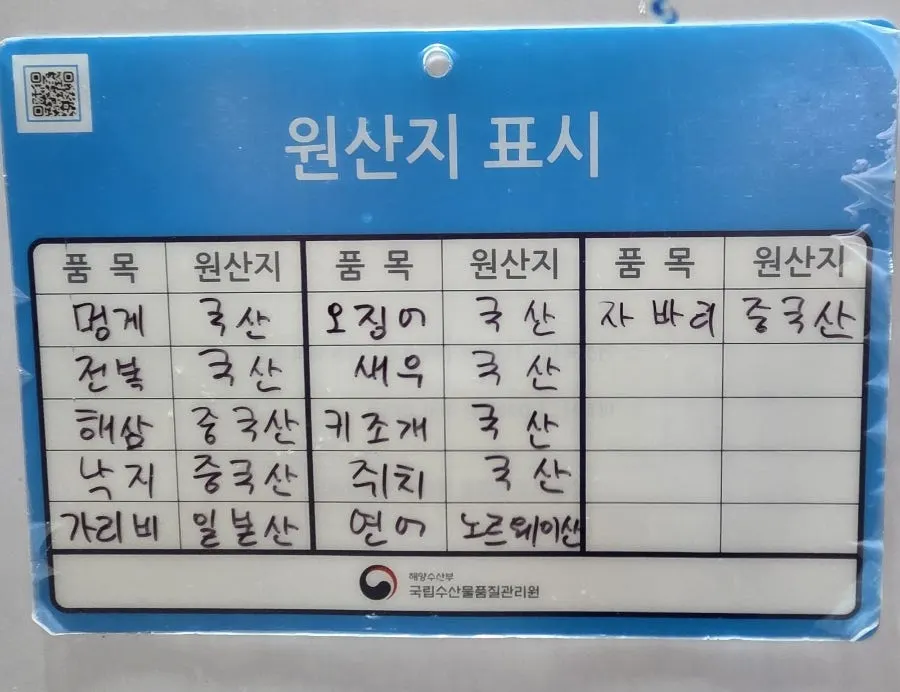 원산지 표시
품 목 원산지 품 목 원산지 품 목 원산지
멍게 국산 오징어 국 산 자 바리 중국산
전복 국 산 새우 국 산
해삼 중국산 키조개 국 산
낙지 중국산 쥐치 국 산
가리비 일본산 연어 노르웨이산
해양수산부
국립수산물품질관리원